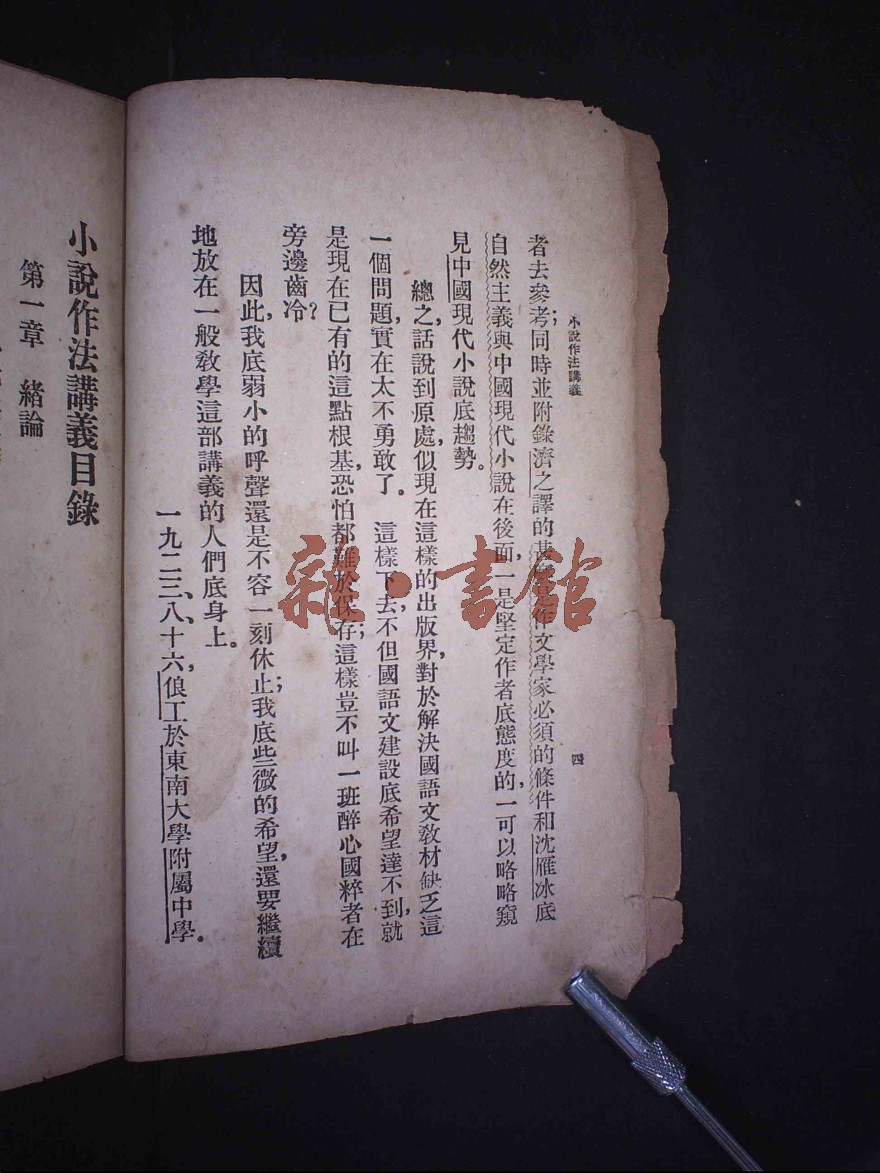 小說作法講義
四
者去參考;同時並附錄濟之譯的甚麼是作文學家必須的條件和沈雁冰底
自然主義與中國現代小說在後面,一是堅定作者底態度的,一可以略略窺
見中國現代小說底趨勢。
總之話說到原處,似現在這樣的出版界,對於解決國語文教材缺乏這
一個問題,實在太不勇敢了。這樣下去,不但國語文建設底希望達不到,就
是現在已有的這點根基,恐怕都難於保存;這樣豈不叫一班醉心國粹者在
旁邊齒冷?
因此,我底弱小的呼聲還是不容一刻休止;我底些微的希望,還要繼續
地放在一般教學這部講義的人們底身上。
一九二三、八、十六,俍工於東南大學附屬中學。
小說作法講義目錄
第一章 緒論
雜·書館